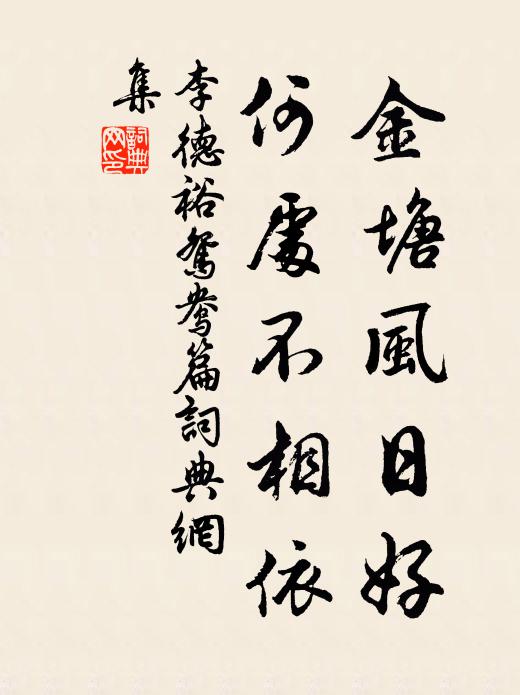 金塘風日好
何處不相依
李德裕鴛鴦篇詞典網
集
詞典
网印